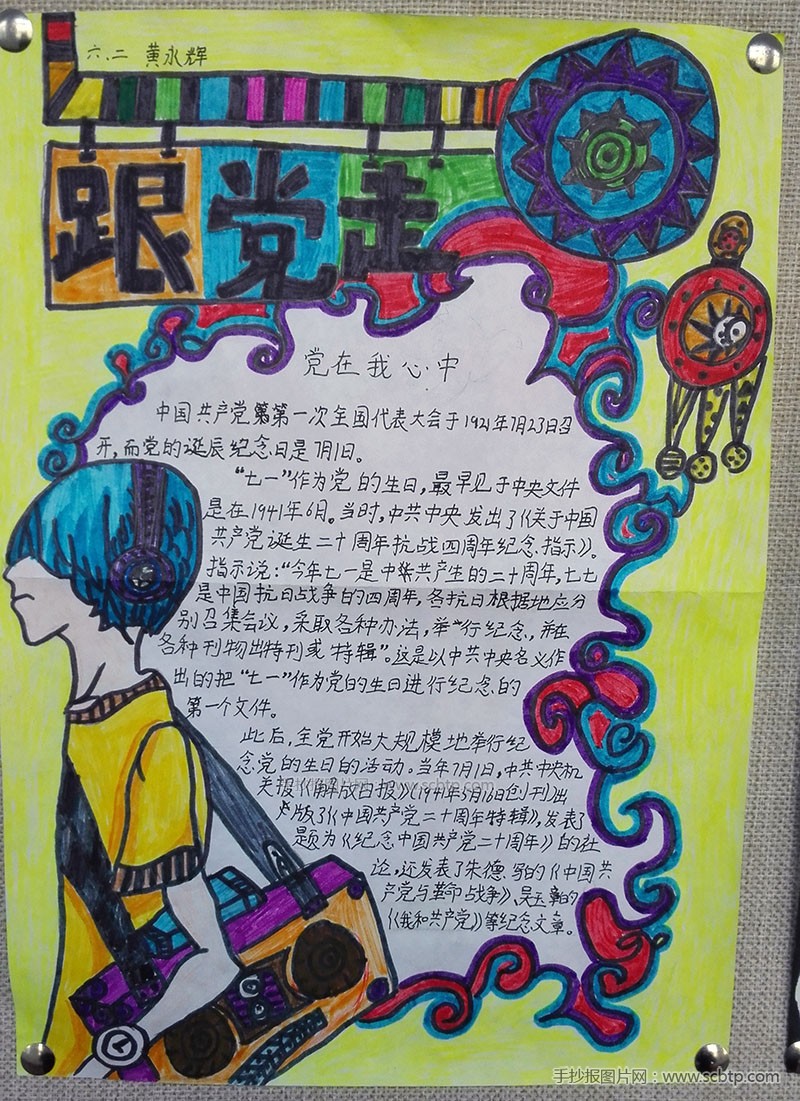 六.二 黄永辉
跟党走
党在我心中
中国共产党第一次全国代表大会于1921年7月23日召
开,而党的诞辰纪念日是7月1日。
“七一”作为党的生日,最早见于中央文件
是在1941年6月。当时,中共中央发出了《关于中国
共产党诞生二十周年抗战四周年纪念,指示》。
指示说:“今年七一是中共产生的二十周年,七七
是中国抗日战争的四周年,各抗日根据地应分
别召集会议,采取各种办法,举行纪念,并在
各种刊物出特刊或“特辑”。这是以中共中央名义作
出的把“七一”作为党的生日进行纪念的
第一个文件。
此后,全党开始大规模地举行纪
念党的生日的活动。当年7月1日,中共中央机
关报《解放日报》(1941年5月16日创刊)出
版了《中国共产党二十周年特辑》,发表了
题为《纪念中国共产党二十周年》的社
论,还发表了朱德写的《中国共
产党与革命战争》、吴玉章的
《我和共产党》等纪念文章。
手抄报图片网:www.scbtp.com
手抄报图片网:www.scbtp.com